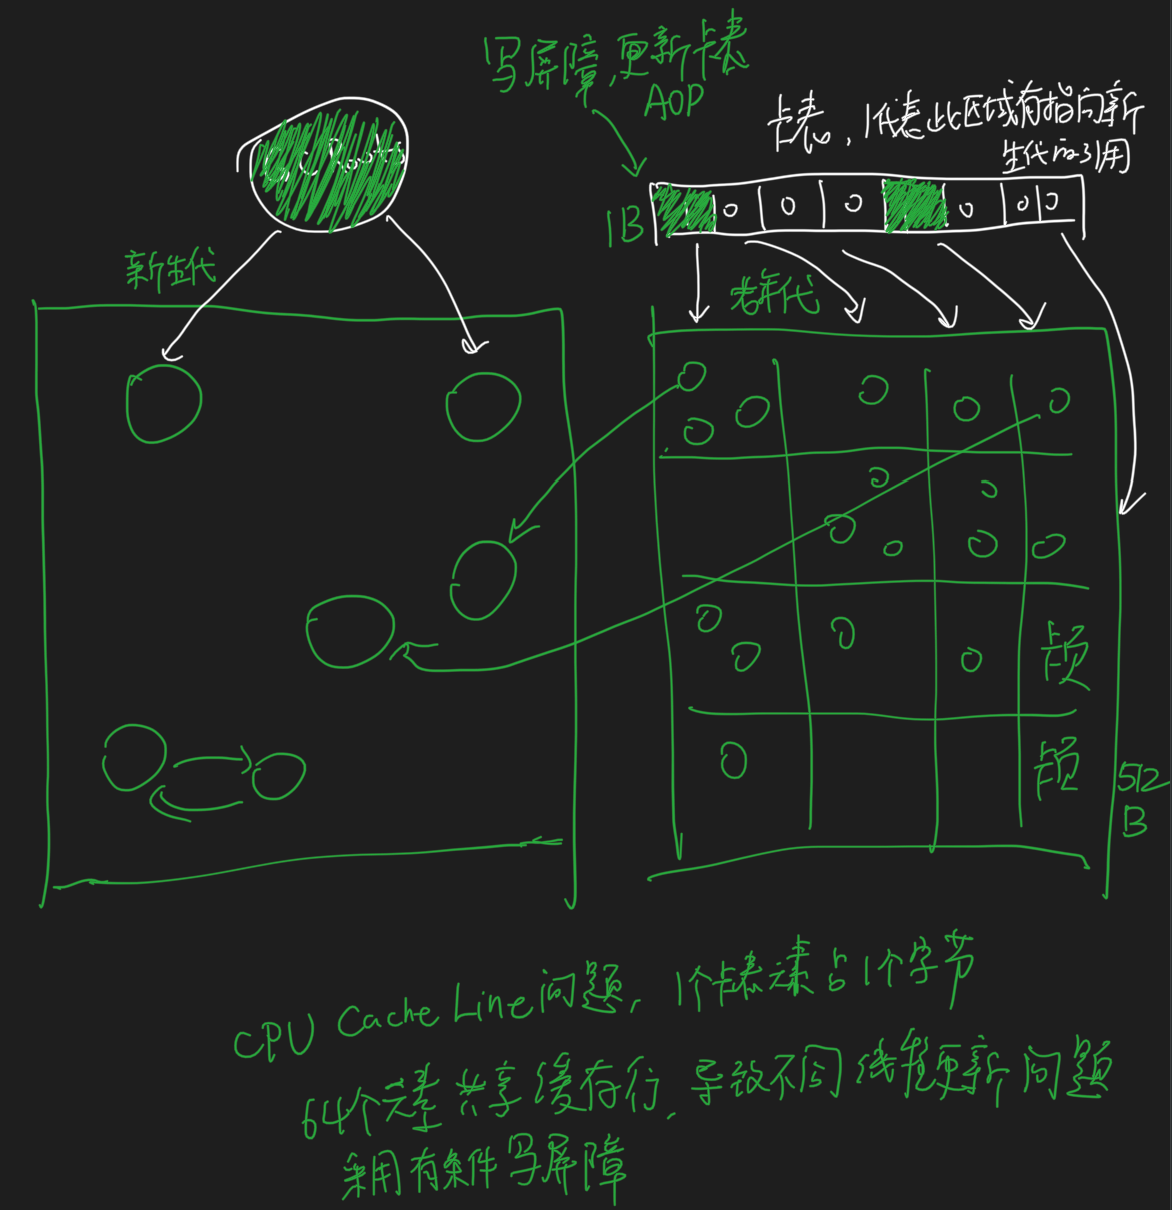 写屏障,更新卡表
AOP
卡表,1代表此区域有指向新
生代的引用
1B
0 0 0 0 0 0
新生代
老年代
卡页
卡页
512
B
CPU Cache Line问题, 1个卡表元素占1个字节
64个元素共享缓存行,导致不同线程更新问题
采用有条件写屏障